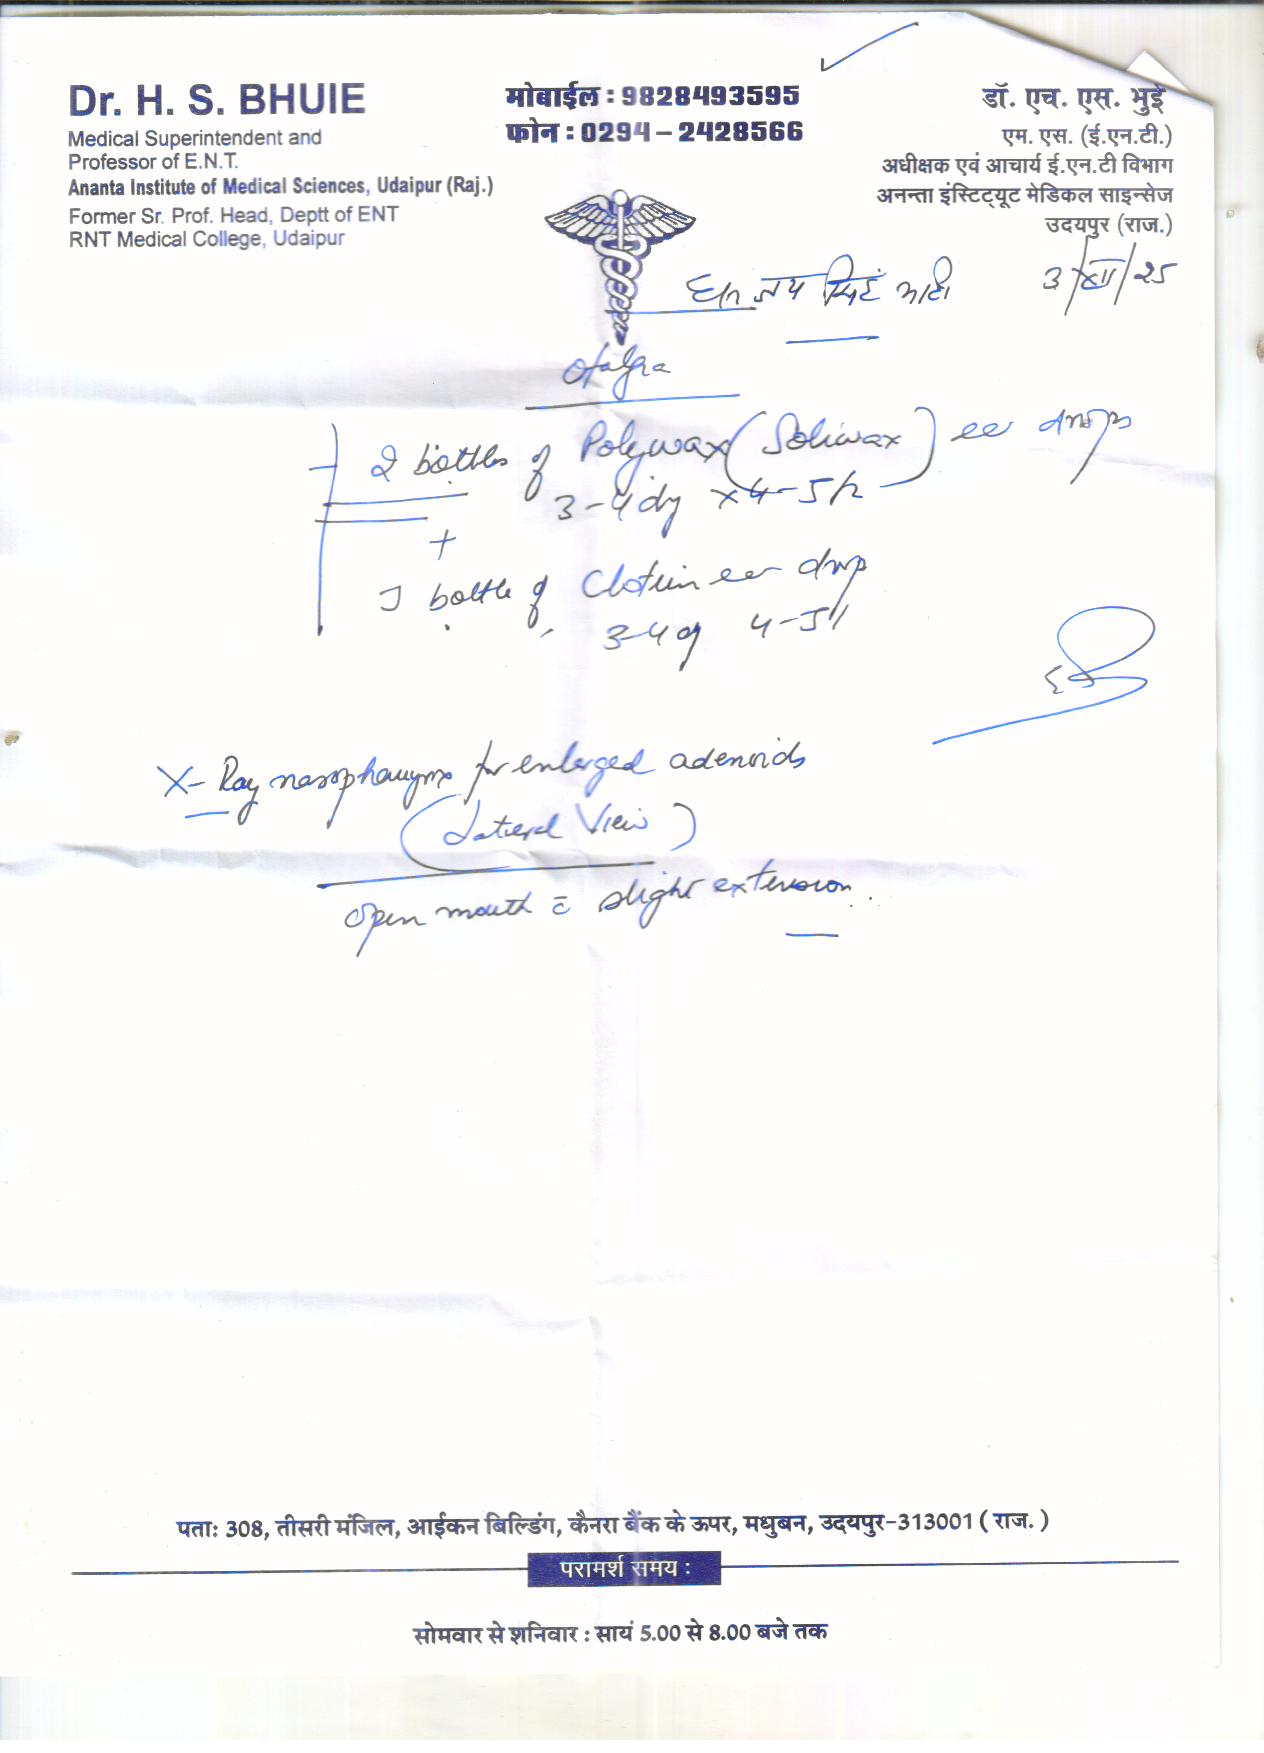 Dr. H. S. BHUIE
Medical Superintendent and
Professor of E.N.T.
Ananta Institute of Medical Sciences, Udaipur (Raj.)
Former Sr. Prof. Head, Deptt of ENT
RNT Medical College, Udaipur
मोबाईल : 9828493595
फोन : 0294 – 2428566
डॉ. एच. एस. भुई
एम. एस. (ई.एन.टी.)
अधीक्षक एवं आचार्य ई.एन.टी विभाग
अनन्ता इंस्टिट्यूट मेडिकल साइन्सेज
उदयपुर (राज.)
जय सिंह
3/XII/25
2 bottles of Polywax (Soliwax) ear drops
3-4 x 4-5
+
1 bottle of ear drop
3-4 4-5
X-Ray nasopharynx for enlarged adenoids
(Lateral View)
open mouth c̄ slight extension.
पता: 308, तीसरी मंजिल, आईकन बिल्डिंग, कैनरा बैंक के ऊपर, मधुबन, उदयपुर-313001 ( राज. )
परामर्श समय :
सोमवार से शनिवार : सायं 5.00 से 8.00 बजे तक